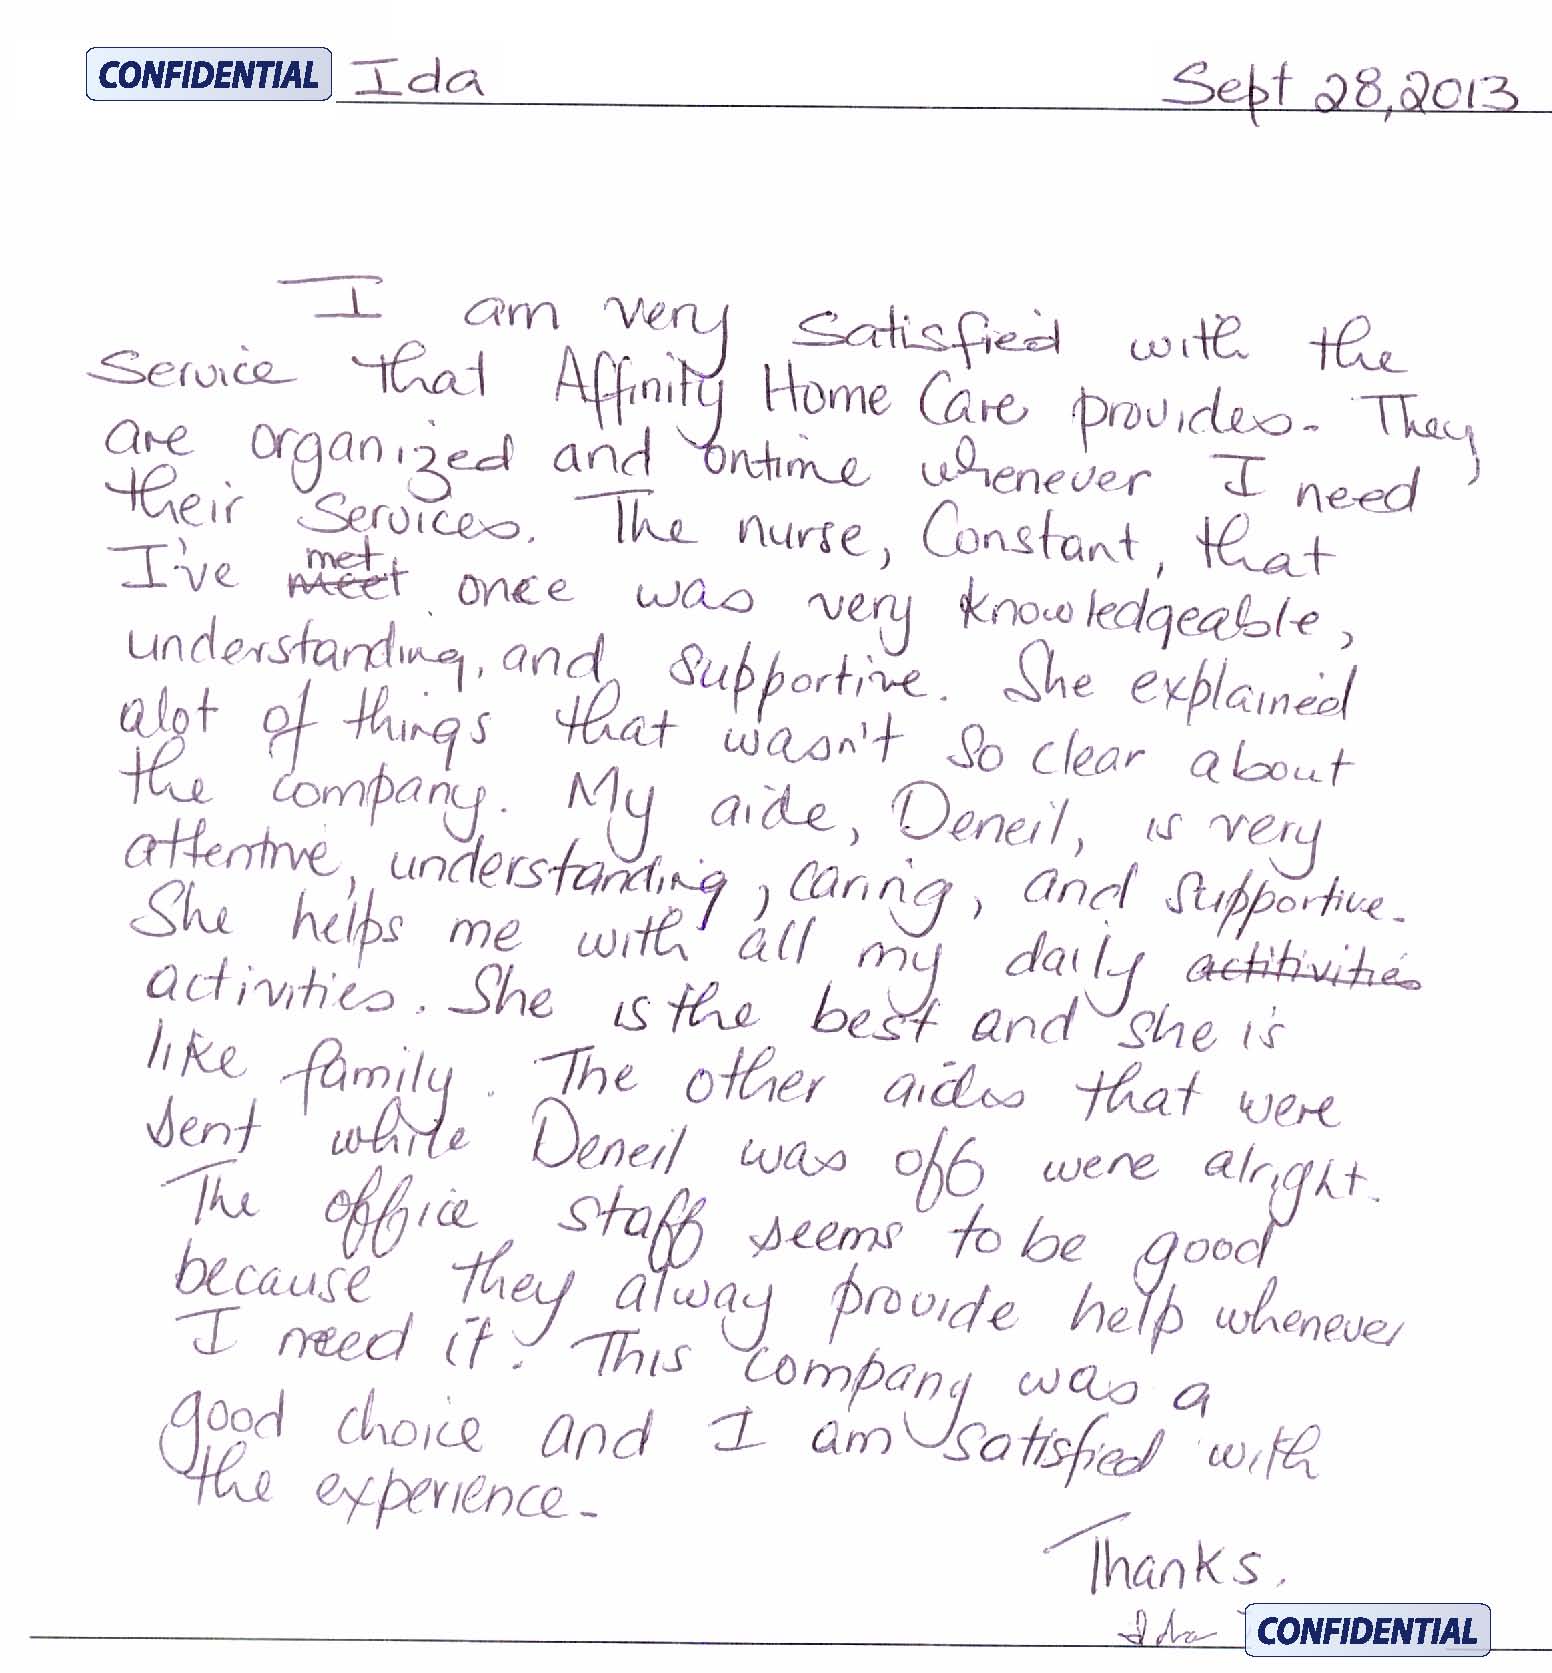 CONFIDENTIAL Ida Sept 28, 2013
I am very satisfied with the
service that Affinity Home Care provides. They
are organized and ontime whenever I need
their services. The nurse, Constant, that
I've meet met once was very knowledgeable,
understanding, and supportive. She explained
alot of things that wasn't so clear about
the company. My aide, Deneil, is very
attentive, understanding, caring, and supportive.
She helps me with all my daily actitivities
activities. She is the best and she is
like family. The other aides that were
sent while Deneil was off were alright.
The office staff seems to be good
because they alway provide help whenever
I need it. This company was a
good choice and I am satisfied with
the experience.
Thanks.
Ida CONFIDENTIAL